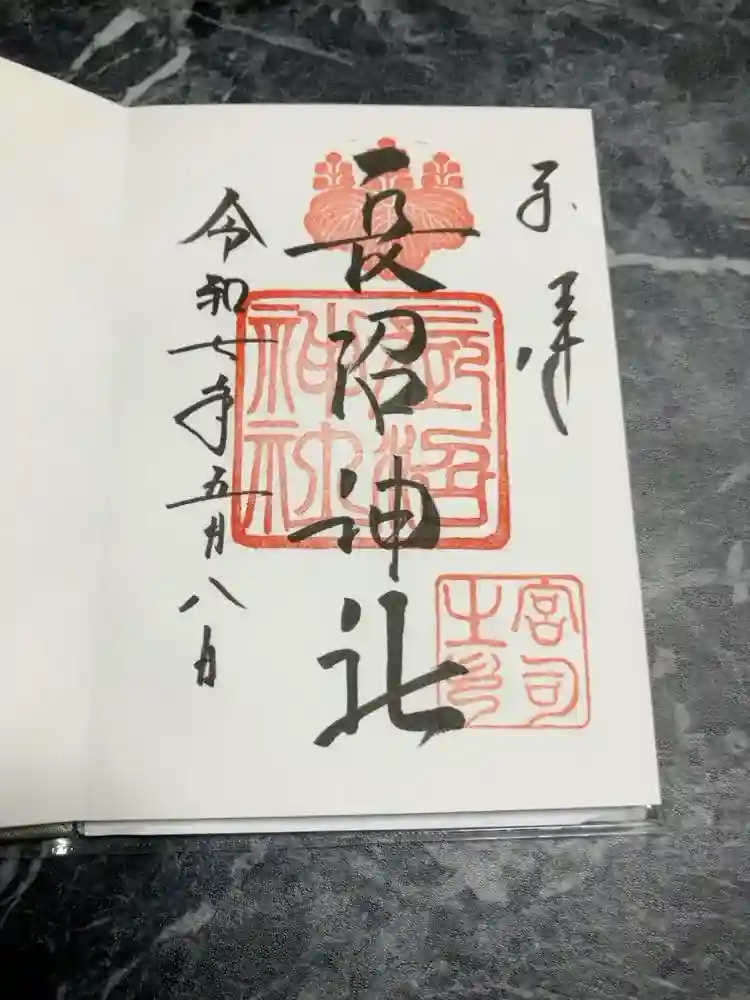 奉拝
長沼神社
長沼神社
宮司之印
令和七年五月八日